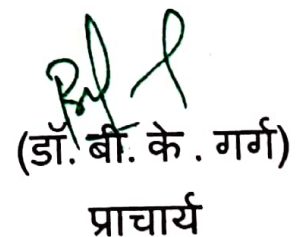 (डॉ. बी. के . गर्ग)
प्राचार्य